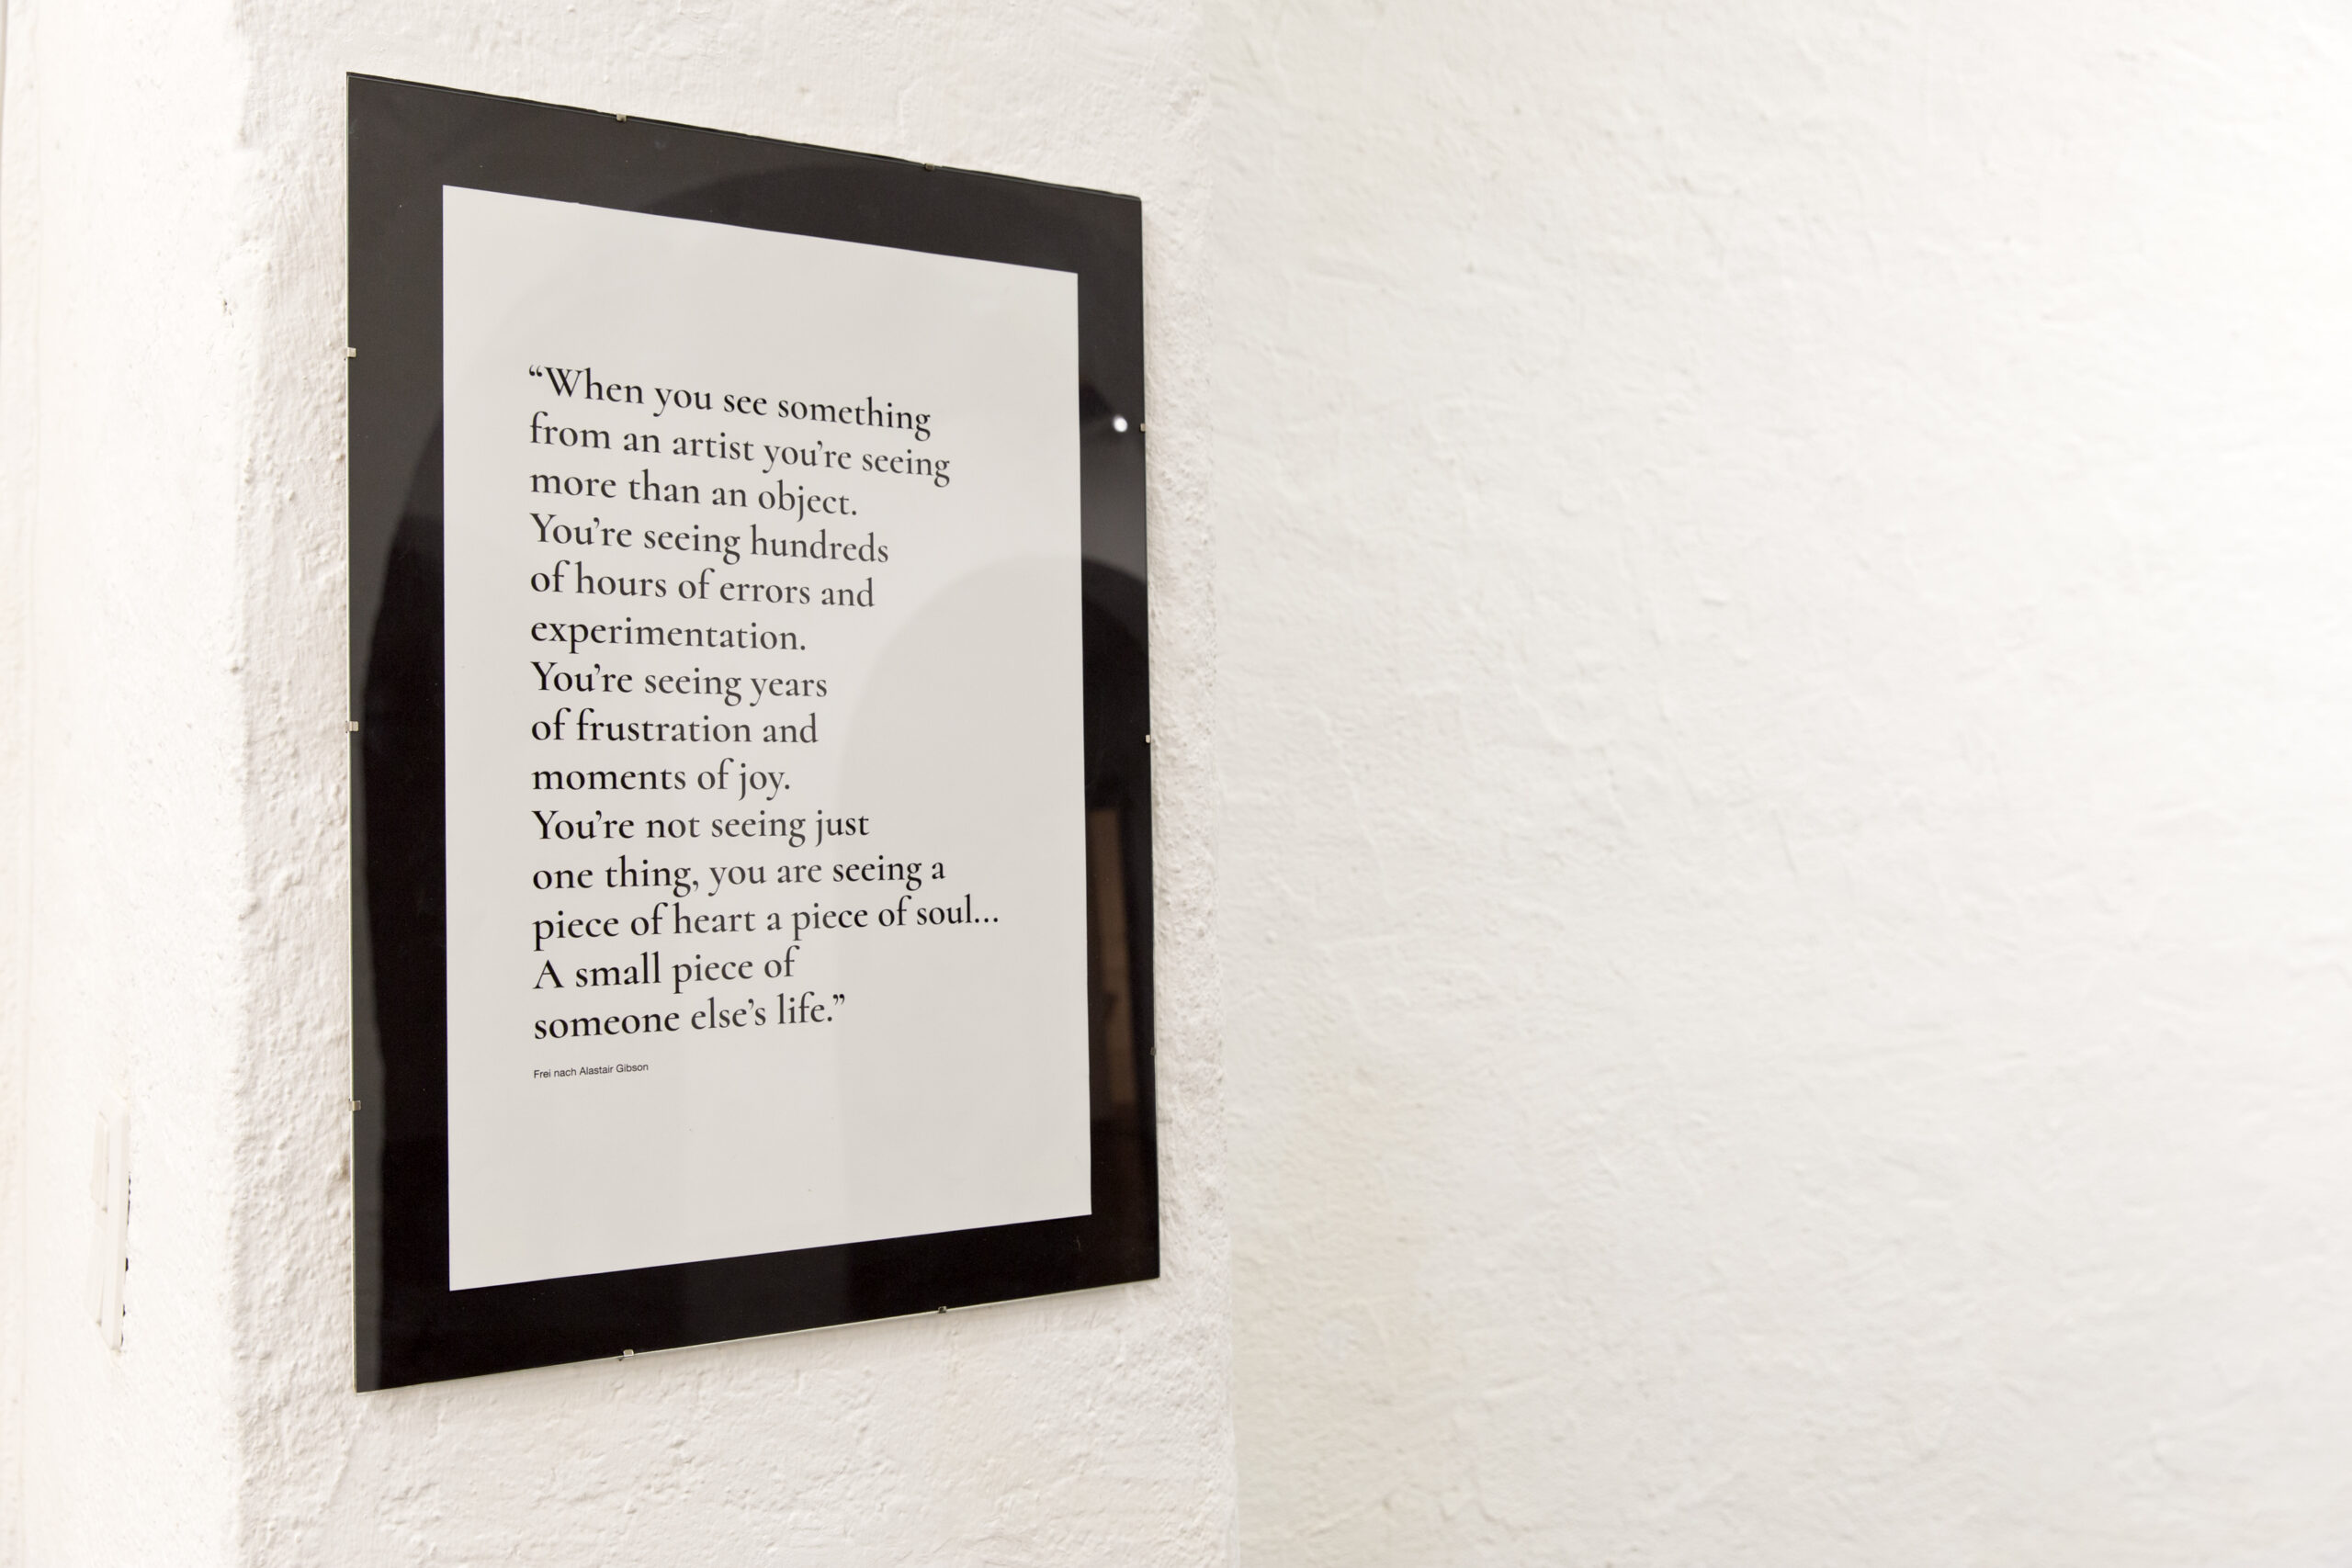 “When you see something
from an artist you’re seeing
more than an object.
You’re seeing hundreds
of hours of errors and
experimentation.
You’re seeing years
of frustration and
moments of joy.
You’re not seeing just
one thing, you are seeing a
piece of heart a piece of soul...
A small piece of
someone else’s life.”
Frei nach Alastair Gibson